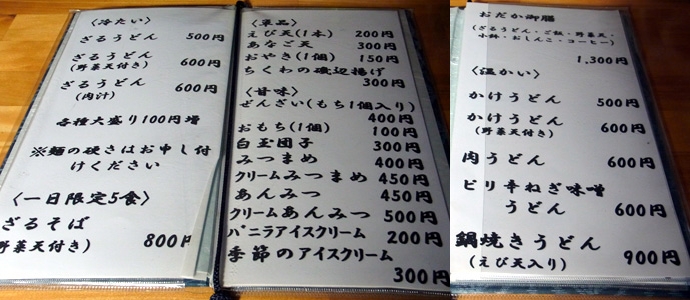 〈冷たい〉
ざるうどん 500円
ざるうどん
(野菜天付き) 600円
ざるうどん
(肉汁) 600円
各種大盛り100円増
※麺の硬さはお申し付
けください
〈一日限定5食〉
ざるそば
野菜天付き) 800円
〈単品〉
えび天(1本) 200円
あなご天 300円
おやき(1個) 150円
ちくわの磯辺揚げ
300円
〈甘味〉
ぜんざい(もち1個入り)
400円
おもち(1個) 100円
白玉団子 300円
みつまめ 400円
クリームみつまめ 450円
あんみつ 450円
クリームあんみつ 500円
バニラアイスクリーム 200円
季節のアイスクリーム
300円
おだか御膳
(ざるうどん・ご飯・野菜天・
小鉢・おしんこ・コーヒー)
1,300円
〈温かい〉
かけうどん 500円
かけうどん
(野菜天付き) 600円
肉うどん 600円
ピリ辛ねぎ味噌
うどん 600円
鍋焼きうどん
(えび天入り) 900円